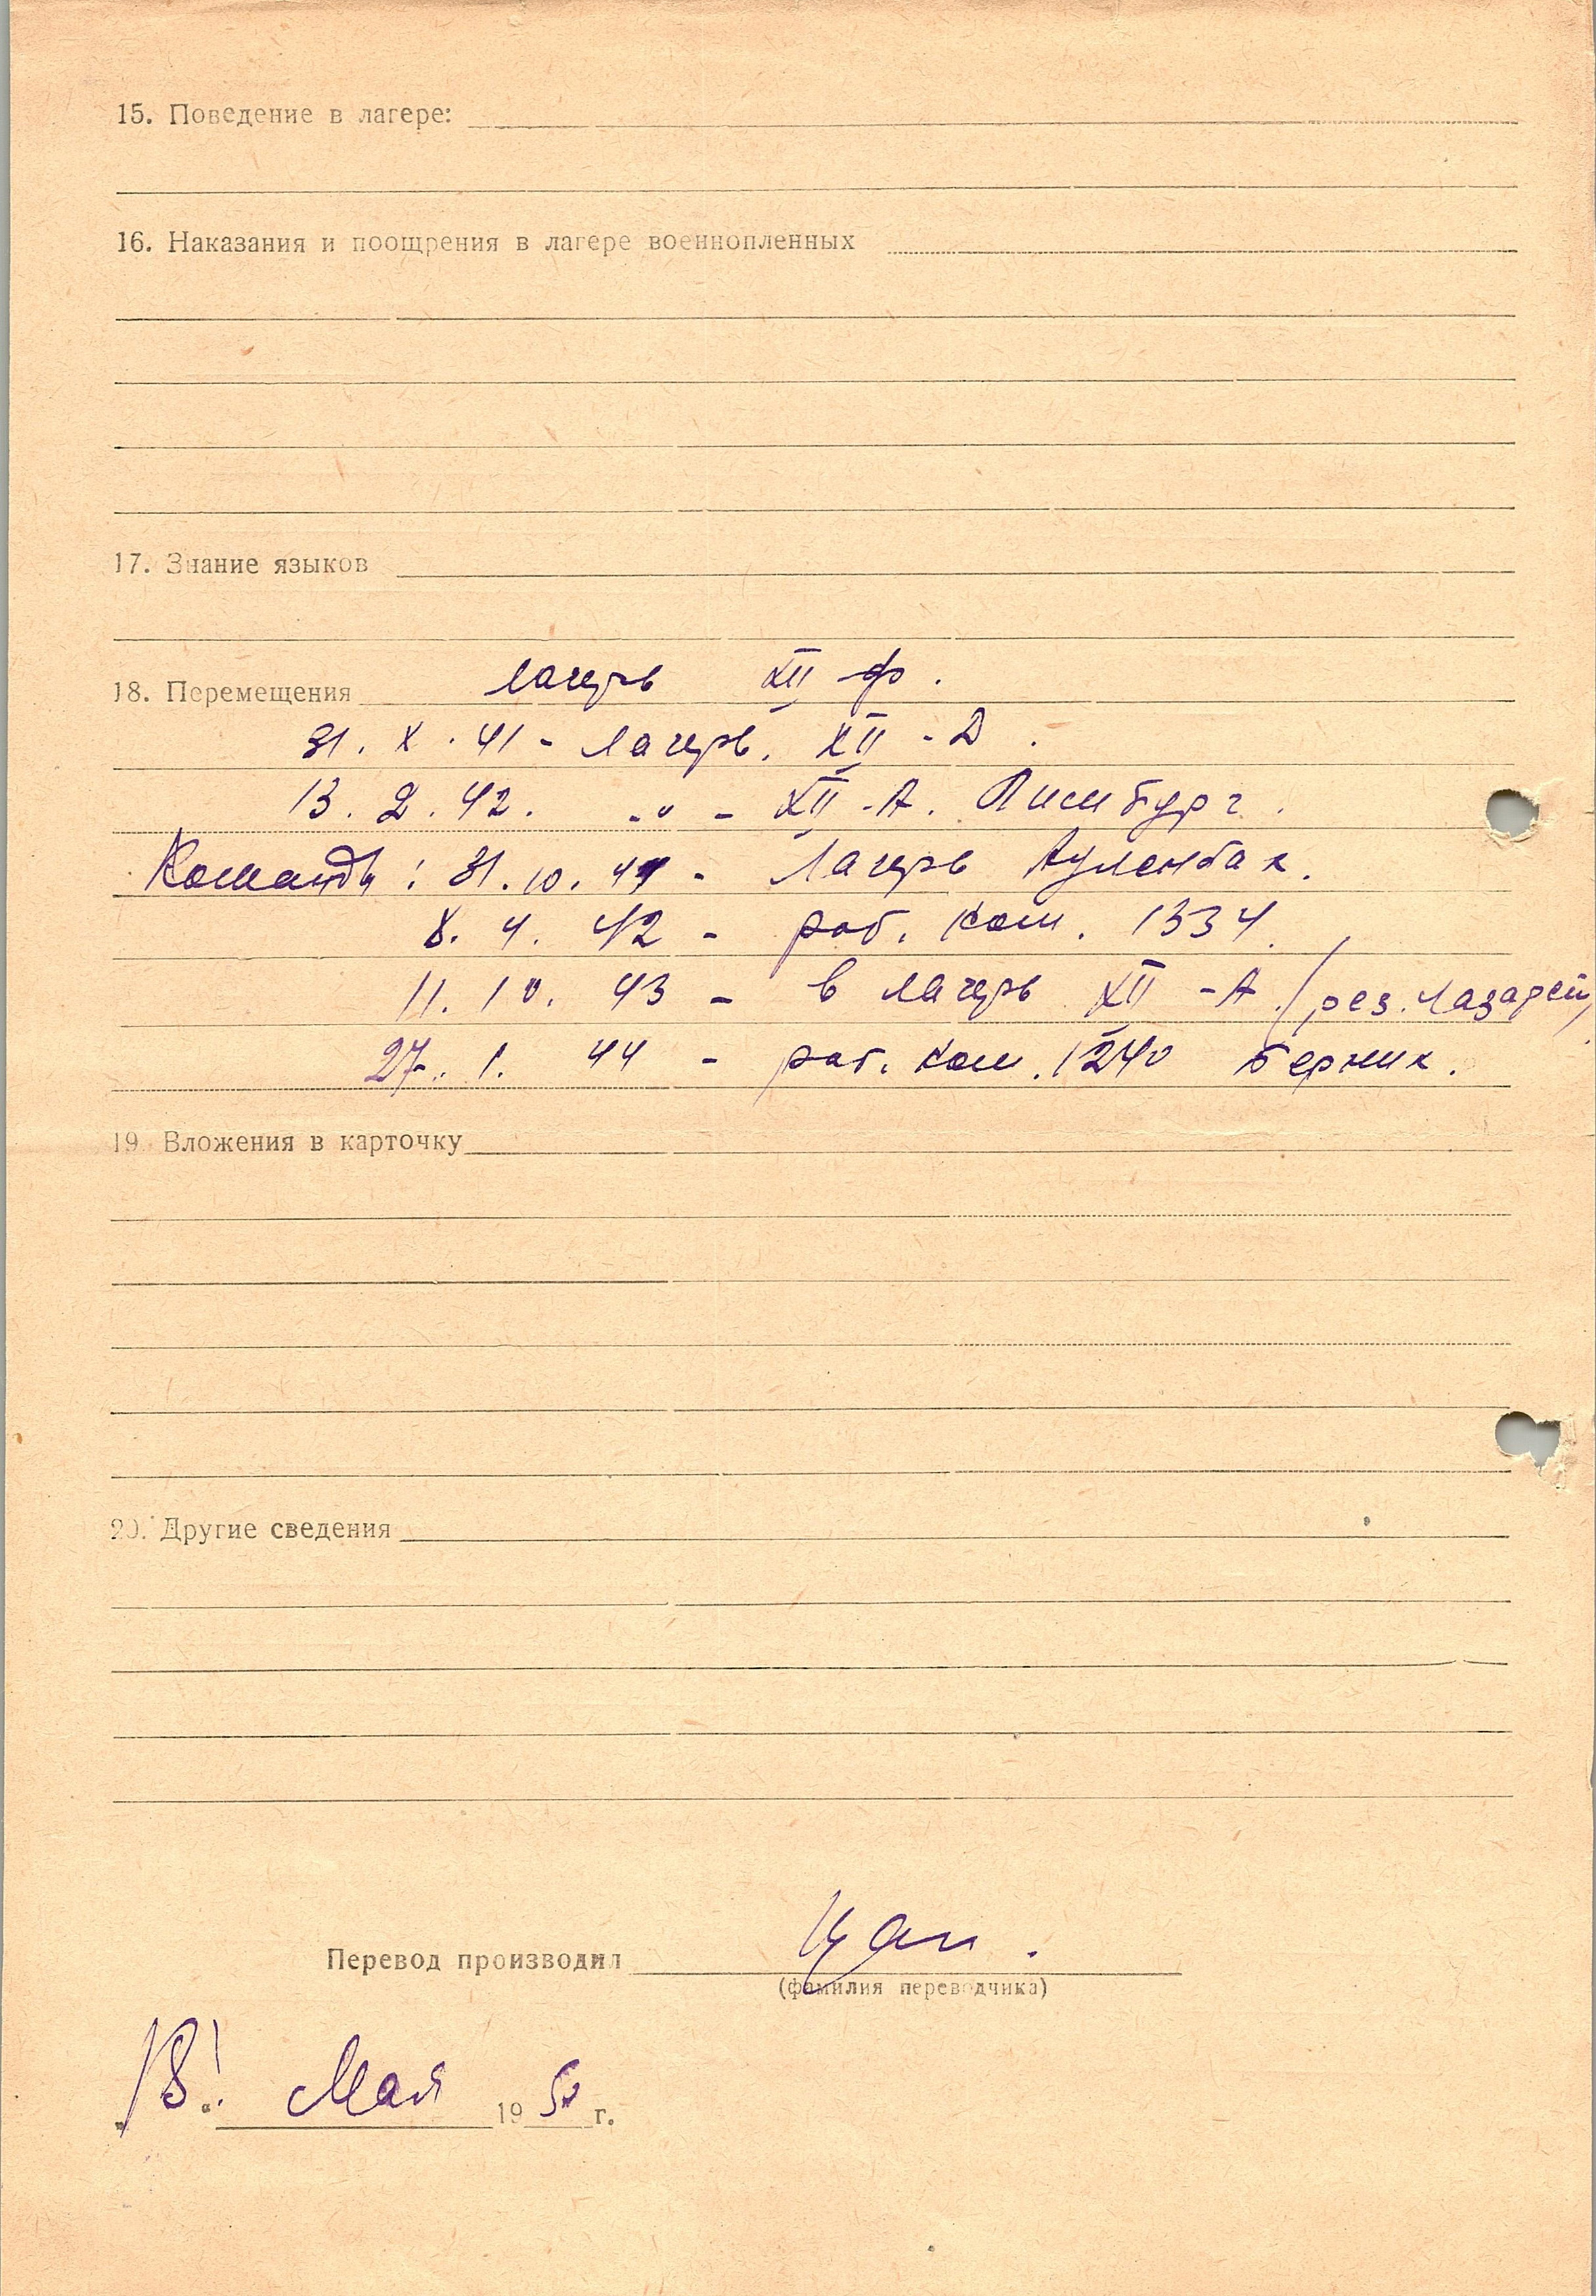 15. Поведение в лагере:
16. Наказания и поощрения в лагере военнопленных
17. Знание языков
18. Перемещения лагерь XII ф.
31. X. 41 - лагерь. XII - Д.
13. 2. 42. -"- - XII - А. Лимбург.
Команды: 31. 10. 41 - Лагерь Ауленбах.
8. 4. 42 - раб. ком. 1334.
11. 10. 43 - в лагерь XII - А. (рез. лазарет)
27. 1. 44 - раб. ком. 1240 Берник.
19. Вложения в карточку
20. Другие сведения
Перевод производил Цап.
(фамилия переводчика)
"18" Мая 1950 г.